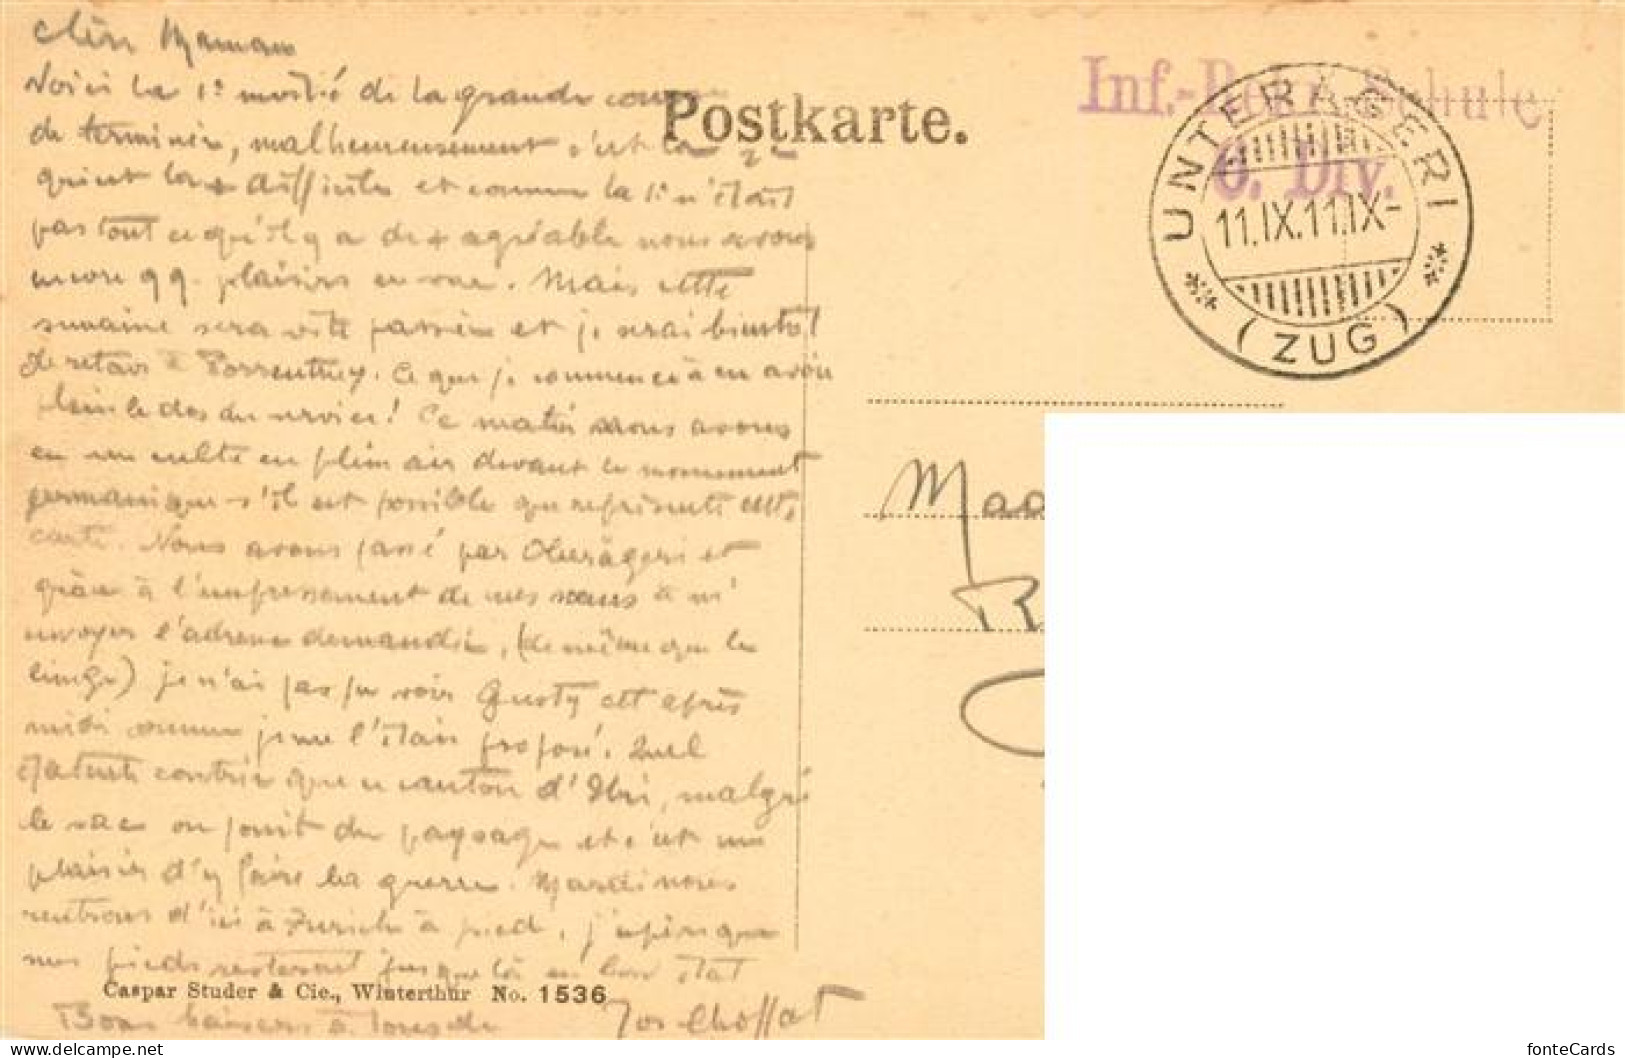 Chère Maman
Voici la 1e moitié de la grande course
de terminée, malheureusement c'est la 2e
qui est la + difficile et comme la 1e n'était
pas tout ce qu'il y a de + agréable nous avons
encore qq. plaisirs en vue. Mais cette
semaine sera vite passée et je serai bientôt
de retour à Porrentruy. Ce que je commence à en avoir
plein le dos du service! Ce matin nous avons
eu un culte en plein air devant le monument
germanique s'il est possible que représente cette
carte. Nous avons passé par Oberägeri et
grâce à l'empressement de mes sœurs à m'
envoyer l'adresse demandée, (de même que le
linge) je n'ai pas pu voir Gusty cet après
midi comme je me l'étais proposé. Quel
contrée que ce canton d', malgré
le sac on jouit du paysage et c'est un
plaisir d'y faire la guerre. Mardi nous
rentrons d'ici à Zurich à pied, j'espère que
mes pieds resteront jusque là en bon état
Bons baisers à tous de Jos Choffat
Caspar Studer & Cie., Winterthur No. 1536
Postkarte.
Inf.-Rekr. Schule
6. Div.
UNTERÄGERI
11.IX.11.IX-
(ZUG)
fonteCards
delcampe.net